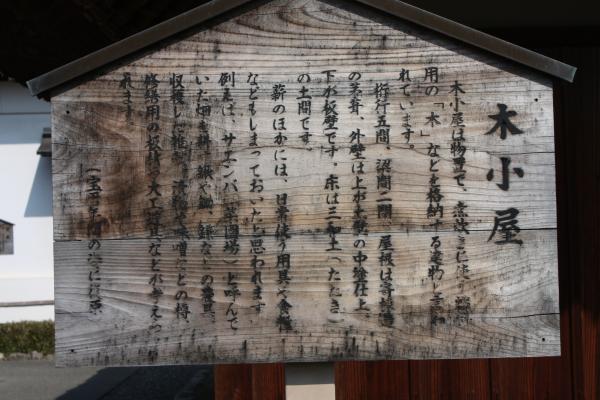 木小屋
木小屋は物置で、煮炊きに使う燃料
用の「木」などを格納する建物と言わ
れています。
桁行五間、梁間二間、屋根は寄棟造
の茅葺、外壁は上が土壁の中塗仕上、
下が板壁です。床は三和土（たたき）
の土間です。
薪のほかには、日常使う用具や食糧
などもしまっておいたと思われます
例えば、サエンバ（菜園場）と呼んで
いた畑を耕す鍬や鋤、鎌などの農具、
収穫した
味噌などの樽、
修繕用の板材や大工道具などが考えら
れます。